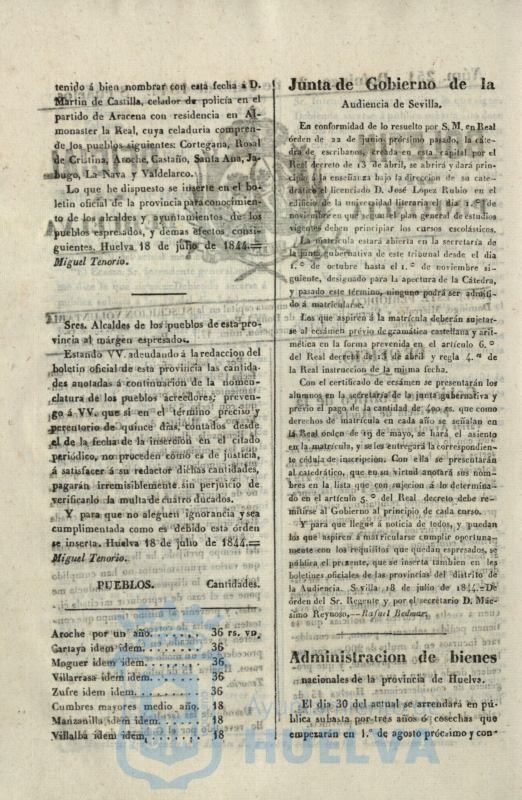 tenido á bien nombrar con esta fecha á D.
Martin de Castilla, celador de policía en el
partido de Aracena con residencia en Al-
monaster la Real, cuya celaduria compren-
de los pueblos siguientes: Cortegana, Rosal
de Cristina, Aroche, Castaño, Santa Ana, Ja-
bugo, La Nava y Valdelarco.
Lo que he dispuesto se inserte en el bo-
letin oficial de la provincia para conocimien-
to de los alcaldes y ayuntamientos de los
pueblos espresados, y demas efectos consi-
guientes. Huelva 18 de julio de 1844.=
Miguel Tenorio.
Sres. Alcaldes de los pueblos de esta pro-
vincia al márgen espresados.
Estando VV. adeudando á la redaccion del
boletin oficial de esta provincia las cantida-
des anotadas á continuacion de la nomen-
clatura de los pueblos acreedores; preven-
go á VV. que si en el término preciso y
perentorio de quince dias, contados desde
el de la fecha de la insercion en el citado
periódico, no proceden como es de justicia,
á satisfacer á su redactor dichas cantidades,
pagarán irremisiblemente sin perjuicio de
verificarlo la multa de cuatro ducados.
Y para que no aleguen ignorancia y sea
cumplimentada como es debido esta órden
se inserta. Huelva 18 de julio de 1844.=
Miguel Tenorio.
PUEBLOS. Cantidades.
Aroche por un año. . . . . . . 36 rs. vn.
Cartaya idem idem. . . . . . . 36
Moguer idem idem. . . . . . . 36
Villarrasa idem idem. . . . . . 36
Zufre idem idem. . . . . . . . 36
Cumbres mayores medio año. 18
Manzanilla idem idem. . . . . . 18
Villalba idem idem. . . . . . . 18
Junta de Gobierno de la
Audiencia de Sevilla.
En conformidad de lo resuelto por S. M. en Real
órden de 22 de junio prócsimo pasado, la cáte-
dra de escribanos, creada en esta capital por el
Real decreto de 13 de abril, se abrirá y dará prin-
cipio á la enseñanza bajo la direccion de su cate-
drático el licenciado D. José Lopez Rubio en el
edificio de la universidad literaria el dia 1.º de
noviembre en que segun el plan general de estudios
vigentes deben principiar los cursos escolásticos.
La matrícula estará abierta en la secretaría de
la junta gubernativa de este tribunal desde el dia
1.º de octubre hasta el 1.º de noviembre si-
guiente, designado para la apectura de la Cátedra,
y pasado este término, ninguno podrá ser admiti-
do á matricularse.
Los que aspiren á la matrícula deberán sujetar-
se al ecsámen prévio de gramática castellana y arit-
mética en la forma prevenida en el artículo 6.º
del Real decreto de 13 de abril y regla 4.ª de
la Real instruccion de la misma fecha.
Con el certificado de ecsámen se presentarán los
alumnos en la secretaría de la junta gubernativa y
prévio el pago de la cantidad de 400 rs. que como
derechos de matrícula en cada año se señalan en
la Real órden de 19 de mayo, se hará el asiento
en la matrícula, y se les entregará la correspondien-
te cédula de inscripcion. Con ella se presentarán
al catedrático, que en su virtud anotará sus nom-
bres en la lista que con sujecion á lo determina-
do en el artículo 5.º del Real decreto debe re-
mitirse al Gobierno al principio de cada curso.
Y para que llegue á noticia de todos, y puedan
los que aspiren á matricularse cumplir oportuna-
mente con los requisitos que quedan espresados, se
publica el presente, que se inserta tambien en los
boletines oficiales de las provincias del distrito de
la Audiencia. Sevilla 18 de julio de 1844.-De
órden del Sr. Regente y por el secretario D. Mác-
simo Reynoso,—Rafael Bedmar.
Administracion de bienes
nacionales de la provincia de Huelva.
El dia 30 del actual se arrendará en pú-
blica subasta por tres años ó cosechas que
empezarán en 1.º de agosto prócsimo y con-
HUELVA